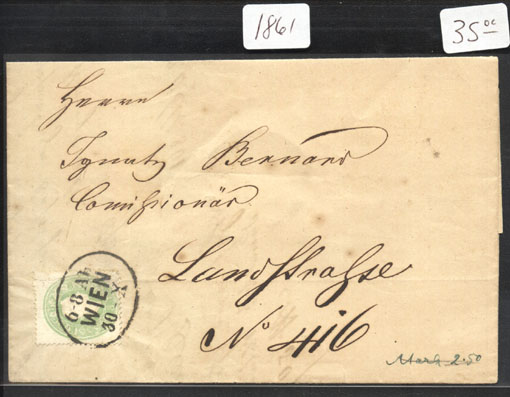 1861
35 oc
Herrn
Ignatz Bernard
Comißionär
Landstrasse
No 416
6-8 A
WIEN
30 X
Merk 2.50